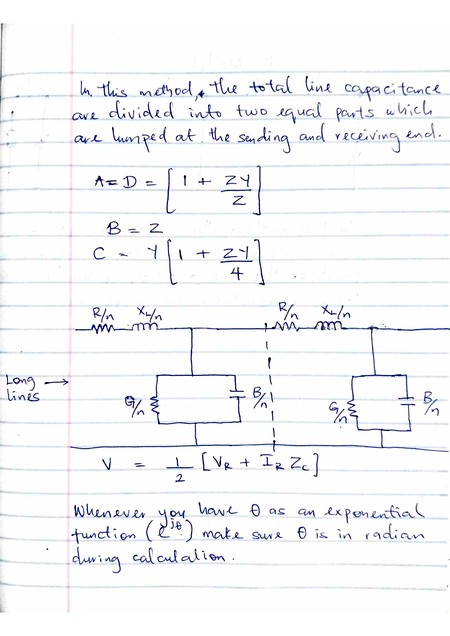 In this method, the total line capacitance
are divided into two equal parts which
are lumped at the sending and receiving end.
A = D = [1 + ZY/2]
B = Z
C = Y[1 + ZY/4]
R/n XL/n R/n XL/n
Long → lines
G/n B/n G/n B/n
V = 1/2 [VR + IR ZC]
Whenever you have θ as an exponential
function (e^jθ) make sure θ is in radian
during calculation.